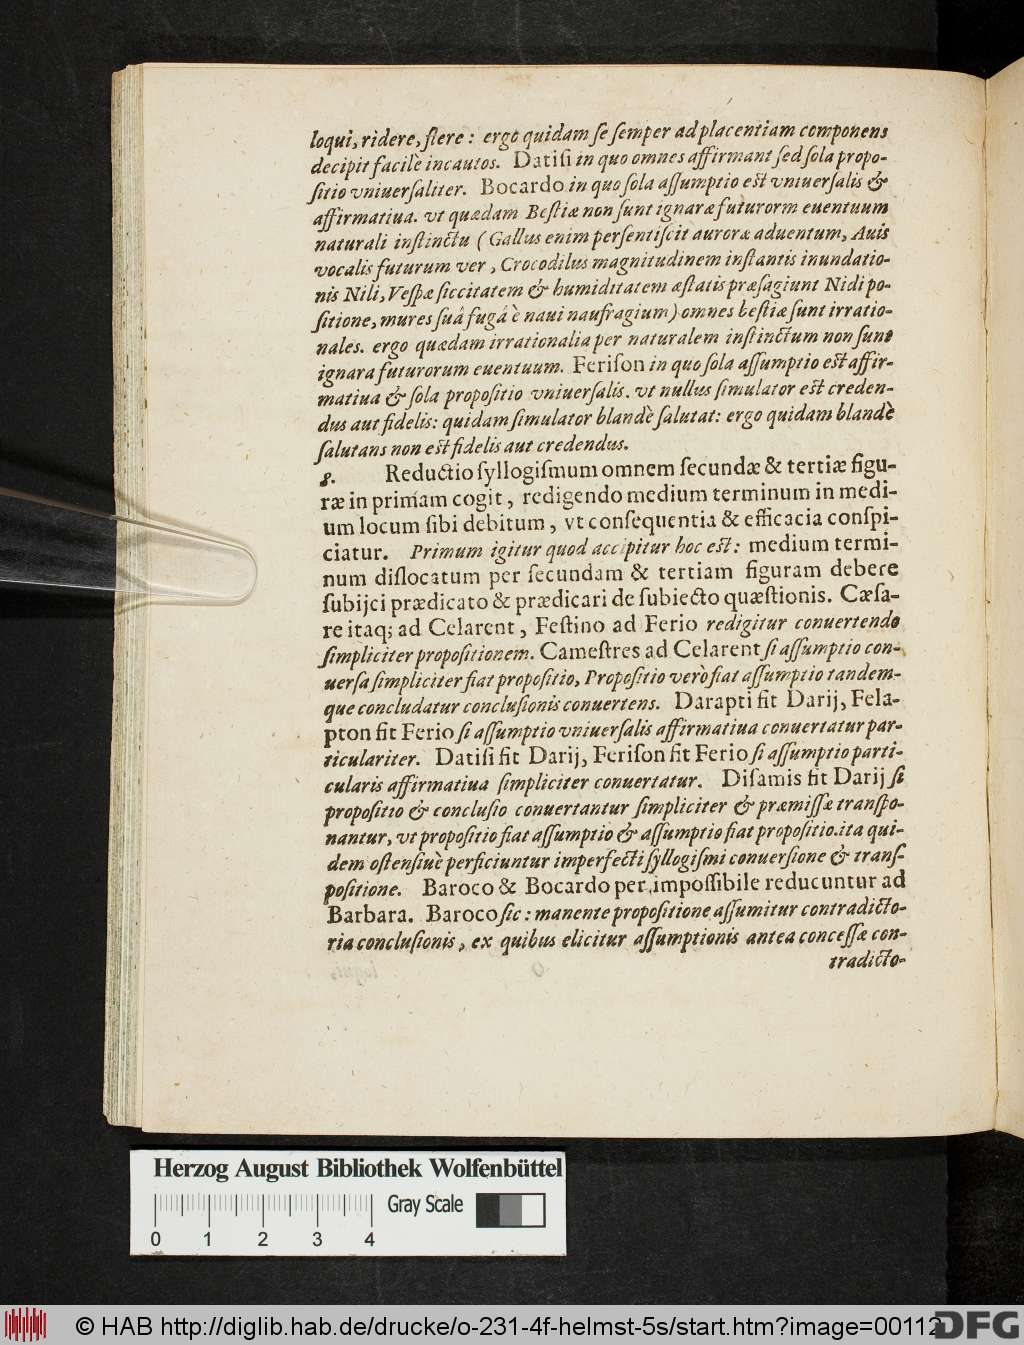 loqui, ridere, flere: ergo quidam ſe ſemper ad placentiam componens
decipit facilè incautos. Datiſi in quo omnes affirmant ſed ſola propo-
ſitio vniuerſaliter. Bocardo in quo ſola aſſumptio eſt vniuerſalis &
affirmatiua. vt quædam Beſtiæ non ſunt ignaræ futurorm euentuum
naturali inſtinctu (Gallus enim perſentiſcit auroræ aduentum, Auis
vocalis futurum ver, Crocodilus magnitudinem inſtantis inundatio-
nis Nili, Veſpæ ſiccitatem & humiditatem æſtatis præſagiunt Nidi po-
ſitione, mures ſuâ fugâ è naui naufragium) omnes beſtiæ ſunt irratio-
nales. ergo quædam irrationalia per naturalem inſtinctum non ſunt
ignara futurorum euentuum. Feriſon in quo ſola aſſumptio eſt affir-
matiua & ſola propoſitio vniuerſalis. vt nullus ſimulator eſt creden-
dus aut fidelis: quidam ſimulator blandè ſalutat: ergo quidam blandè
ſalutans non eſt fidelis aut credendus.
8. Reductio ſyllogiſmum omnem ſecundæ & tertiæ figu-
ræ in primam cogit, redigendo medium terminum in medi-
um locum ſibi debitum, vt conſequentia & efficacia conſpi-
ciatur. Primum igitur quod accipitur hoc eſt: medium termi-
num diſlocatum per ſecundam & tertiam figuram debere
ſubijci prædicato & prædicari de ſubiecto quæſtionis. Cæſa-
re itaq; ad Celarent, Feſtino ad Ferio redigitur conuertendo
ſimpliciter propoſitionem. Cameſtres ad Celarent ſi aſſumptio con-
uerſa ſimpliciter fiat propoſitio, Propoſitio verò fiat aſſumptio tandem-
que concludatur concluſionis conuertens. Darapti fit Darij, Fela-
pton fit Ferio ſi aſſumptio vniuerſalis affirmatiua conuertatur par-
ticulariter. Datiſi fit Darij, Feriſon fit Ferio ſi aſſumptio parti-
cularis affirmatiua ſimpliciter conuertatur. Diſamis fit Darij ſi
propoſitio & concluſio conuertantur ſimpliciter & præmiſſæ tranſpo-
nantur, vt propoſitio fiat aſſumptio & aſſumptio fiat propoſitio. ita qui-
dem oſtenſiuè perficiuntur imperfecti ſyllogiſmi conuerſione & tranſ-
poſitione. Baroco & Bocardo per impoſſibile reducuntur ad
Barbara. Baroco ſic: manente propoſitione aſſumitur contradicto-
ria concluſionis, ex quibus elicitur aſſumptionis antea conceſſæ con-
tradicto-
Herzog August Bibliothek Wolfenbüttel
Gray Scale
0 1 2 3 4
© HAB http://diglib.hab.de/drucke/o-231-4f-helmst-5s/start.htm?image=00112
DFG